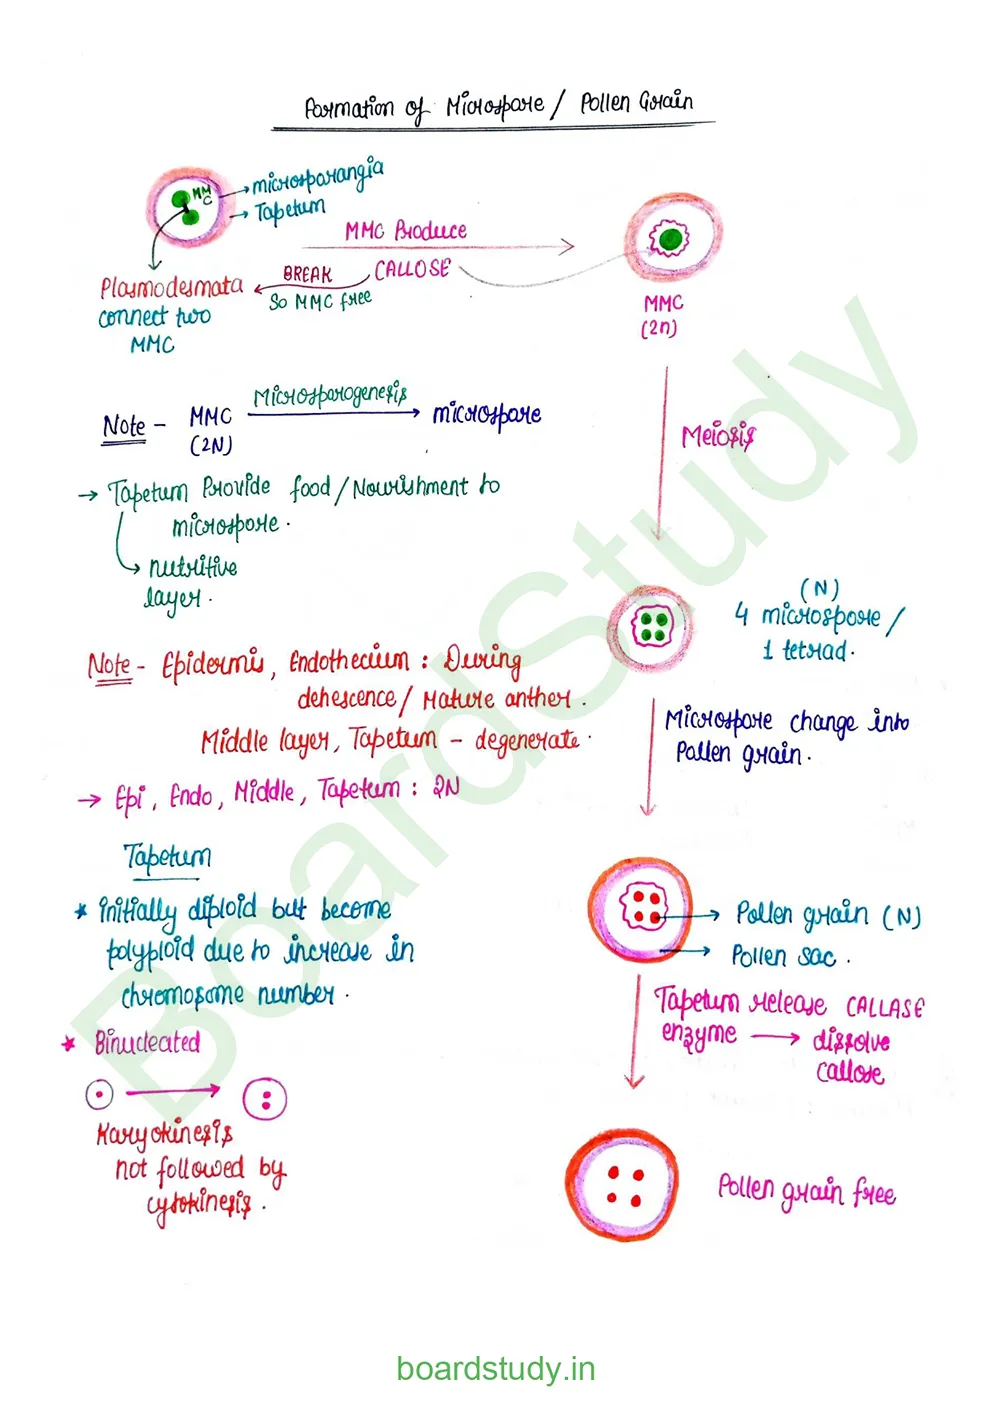 Formation of Microspore / Pollen Grain
MMC
microsporangia
Tapetum
MMC Produce
CALLOSE
BREAK
So MMC free
Plasmodesmata
connect two
MMC
MMC
(2n)
Meiosis
Note - MMC Microsporogenesis microspore
(2N)
→ Tapetum Provide food / Nourishment to
microspore.
nutritive
layer.
(N)
4 microspore /
1 tetrad.
Note - Epidermis, Endothecium : During
dehescence / Mature anther.
Middle layer, Tapetum - degenerate.
→ Epi, Endo, Middle, Tapetum : 2N
Microspore change into
Pollen grain.
Tapetum
★ initially diploid but become
polyploid due to increase in
chromosome number.
★ Binucleated
Karyokinesis
not followed by
cytokinesis.
Pollen grain (N)
Pollen sac.
Tapetum release CALLASE
enzyme → dissolve
callose
Pollen grain free
BoardStudy
boardstudy.in